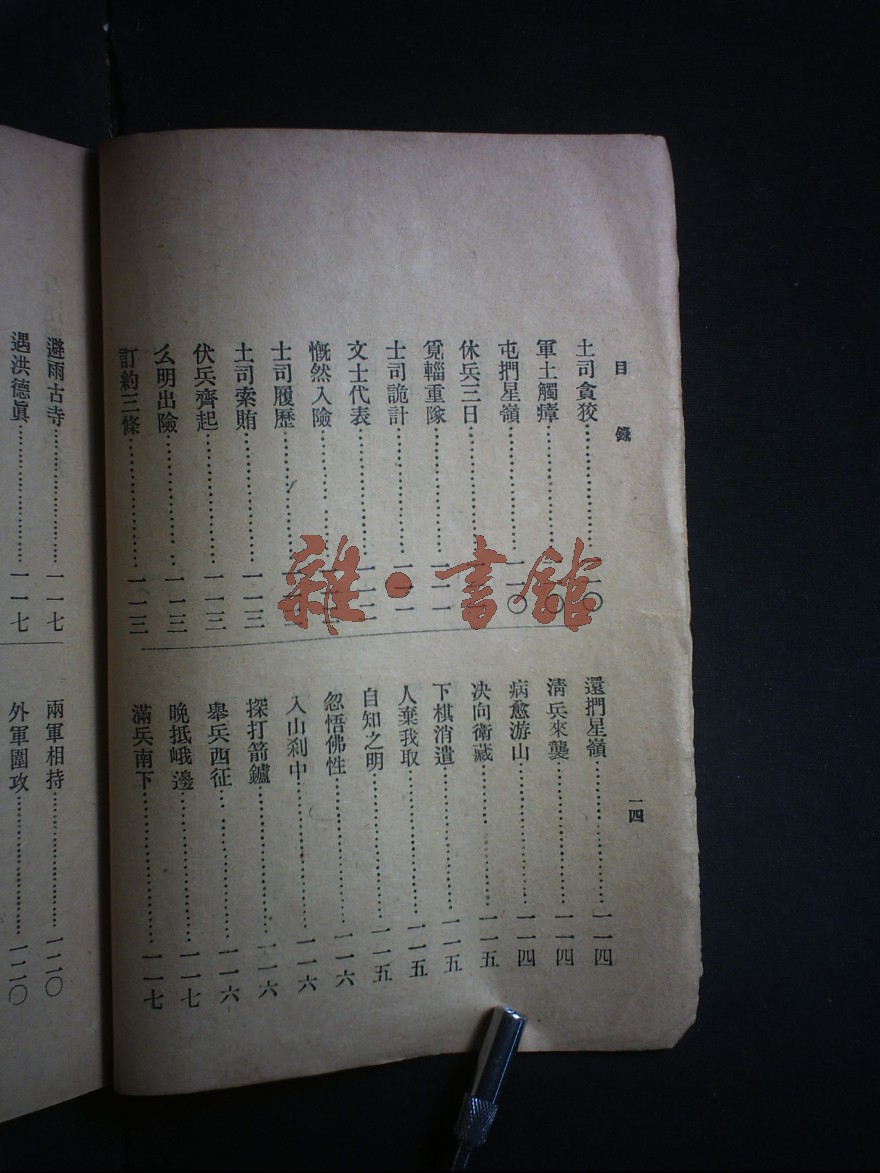 目錄
土司貪狡
軍土觸瘴
屯捫星嶺……一一〇
休兵三日
覓輜重隊……一一一
士司詭計……一一一
文士代表……一一二
慨然入險
士司履歷
土司索賄……一一三
伏兵齊起……一一三
么明出險……一一三
訂約三條……一一三
一四
還捫星嶺……一一四
清兵來襲……一一四
病愈游山……一一四
決向衛藏……一一五
下棋消遣……一一五
人棄我取……一一五
自知之明……一一五
忽悟佛性……一一六
入山剎中……一一六
探打箭鑪……一一六
舉兵西征……一一六
晚抵峨邊……一一七
滿兵南下……一一七
避雨古寺……一一七
遇洪德眞……一一七
兩軍相持……一二〇
外軍圍攻……一二〇
雜·書館